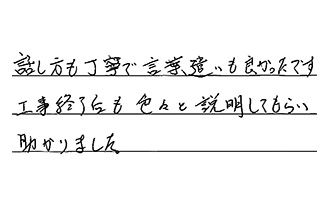 話し方も丁寧で言葉遣いも良かったです
工事終了后も色々と説明してもらい
助かりました。